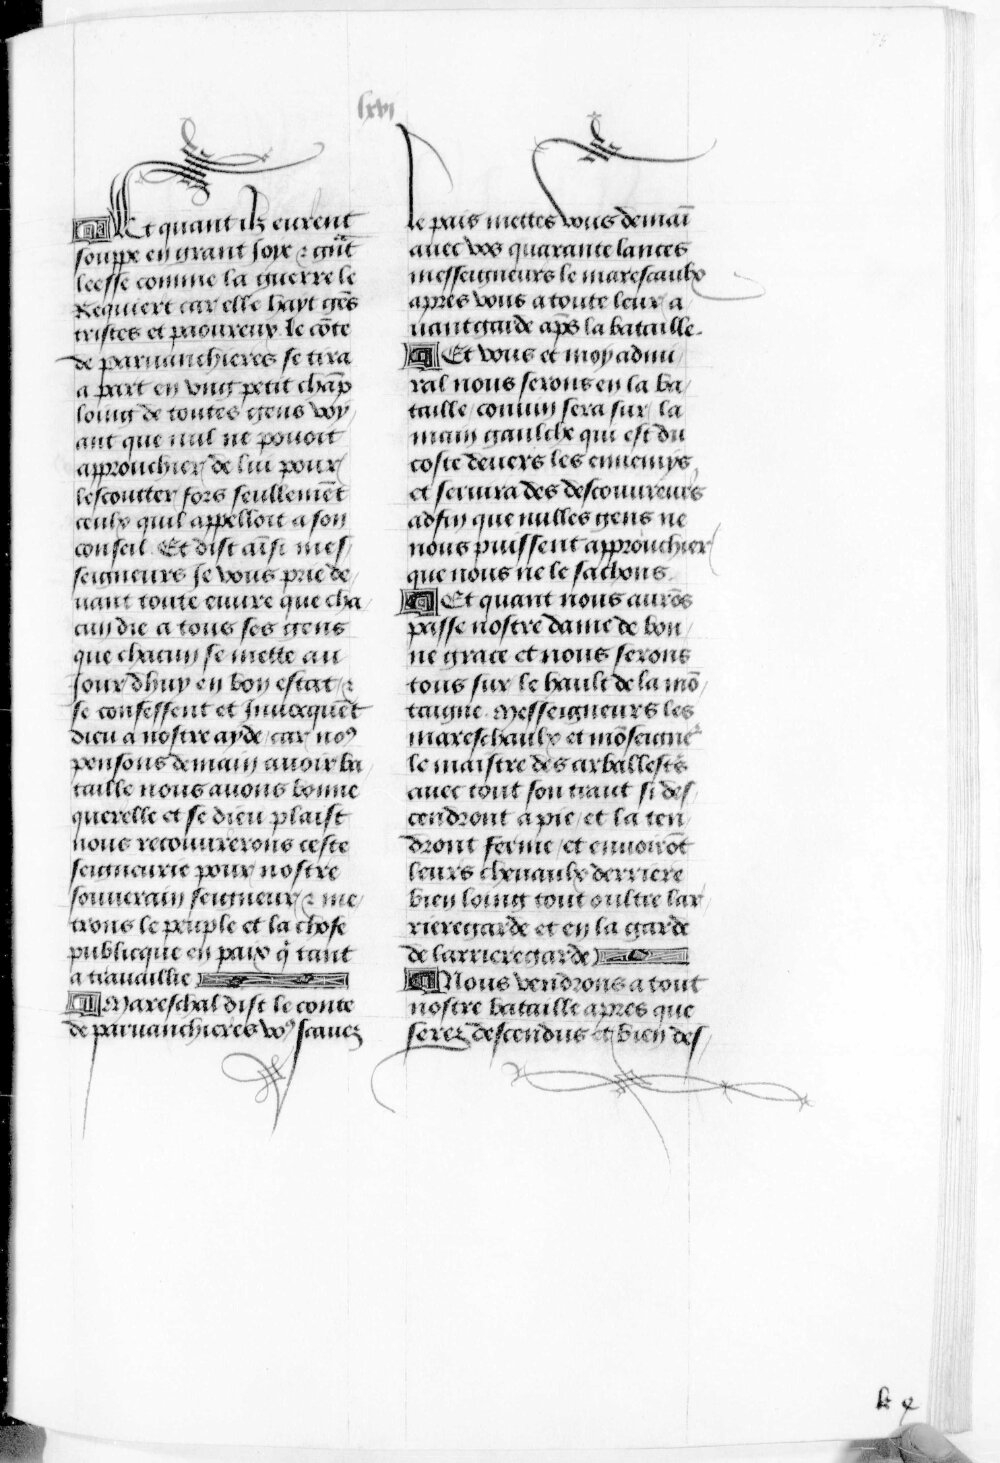 lxvj
Et quant ilz eurent
souppe en grant Joye ⁊ gn̄t
leesse comme la guerre le
Requiert car elle hayt gēs
tristes et paoureux le cōte
de paruanchieres se tira
a part en vng petit chāp
loing de toutes gens voy/
ant que nul ne pouoit
approuchier de lui pour
lescoutter fors seullemēt
ceulx quil appelloit a son
conseil. Et dist aīsi mes/
seigneurs Je vous prie de/
uant toute euure que cha/
cun die a tous ses gens
que chacun se mette au
Jour dhuy en bon estat / ⁊
se confessent et Inuocquēt
dieu a nostre ayde / car no9
pensons demain auoir ba/
taille nous auons bonne
querelle et se dieu plaist
nous recouurerons ceste
seigneurie pour nostre
souuerain seigneur / ⁊ me/
trons le peuple et la chose
publicque en paix q̄ tant
a trauaillie
Mareschal dist le conte
de paruanchieres vo9 scauez
le pais mettes vous demaī
auec vos quarante lances
messeigneurs le marescaulx
apres vous a toute leur a/
uantgarde ap̄s la bataille.
Et vous et moy admi/
ral nous serons en la ba/
taille / conuin sera sur la
main gaulche qui est du
coste deuers les ennemys,
et seruira des descouureurs
adfin que nulles gens ne
nous puissent approuchier
que nous ne le sachons.
Et quant nous aurōs
passe nostre dame de bon/
ne grace et nous serons
tous sur le hault de la mō/
taigne. Messeigneurs les
mareschaulx et mōseigner
le maistre des arballestēs
auec tout son traut si des/
cendront a pie / et la ten/
dront ferme / et enuoirōt
leurs cheuaulx derriere
bien loing tout oultre lar/
rieregarde et en la garde
de larrieregarde
Nous vendrons a tout
nostre bataille apres que
serez descendus et bien des/